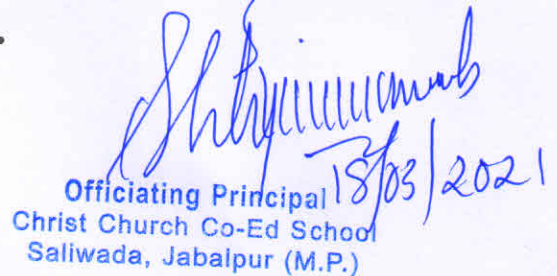 18/03/2021
Officiating Principal
Christ Church Co-Ed School
Saliwada, Jabalpur (M.P.)